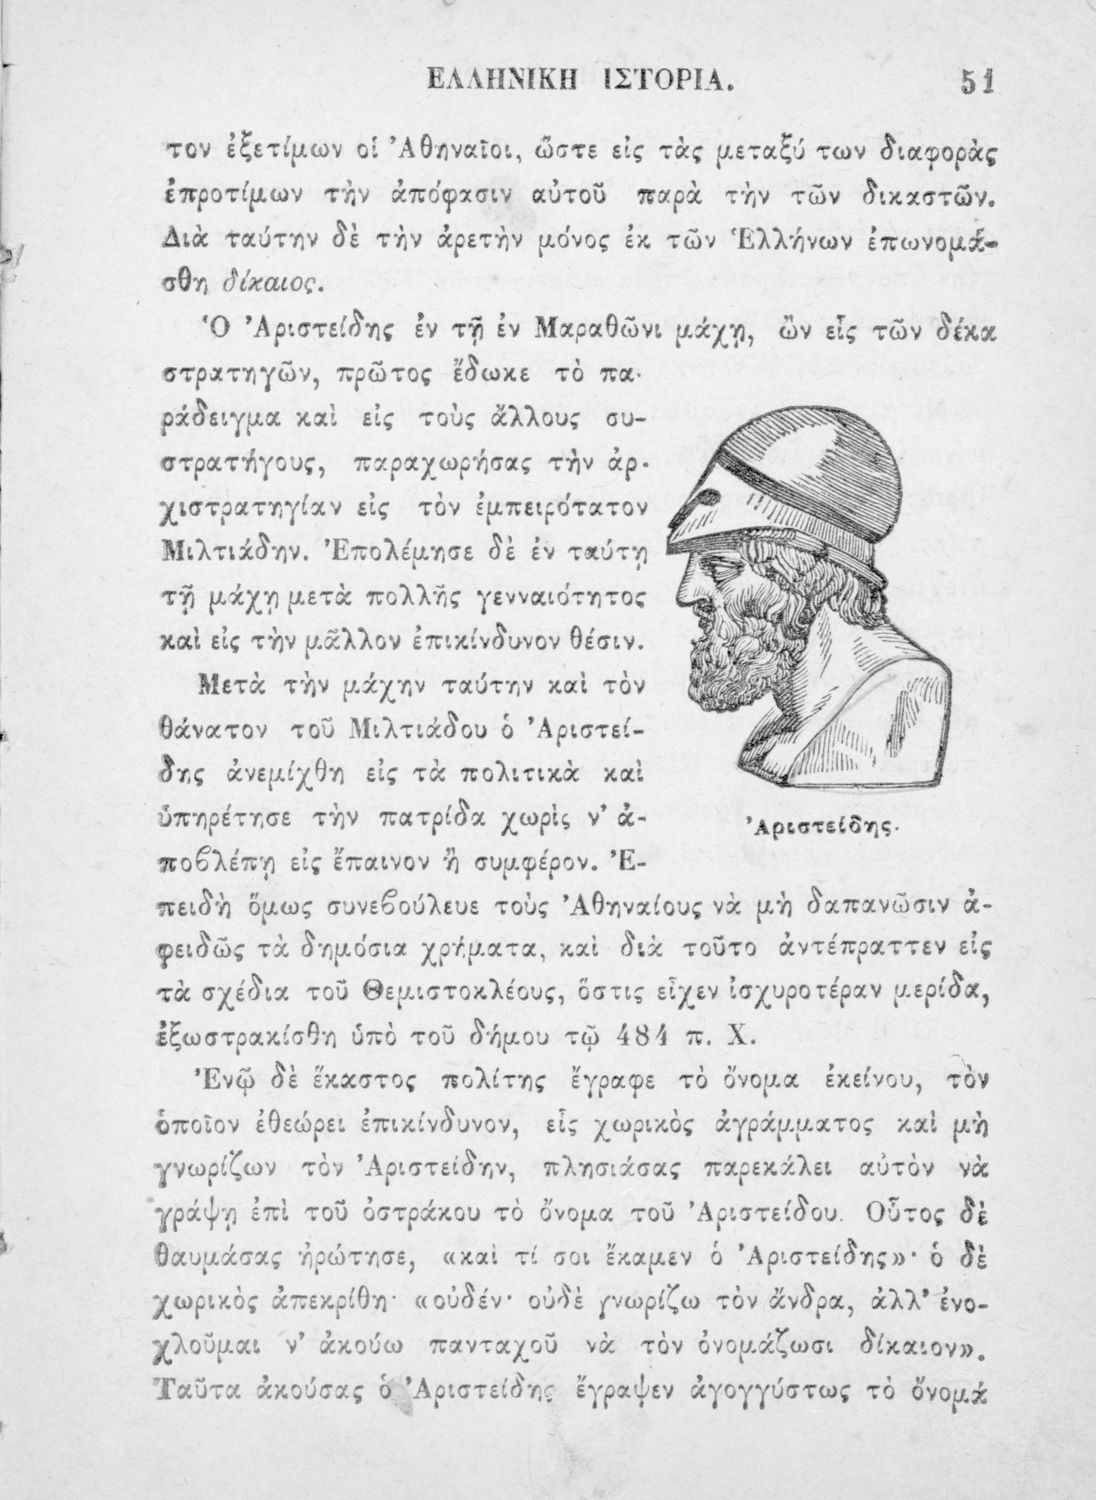 ΕΛΛΗΝΙΚΗ ΙΣΤΟΡΙΑ. 51
τον ἐξετίμων οἱ Ἀθηναῖοι, ὥστε εἰς τὰς μεταξύ των διαφορὰς
ἐπροτίμων τὴν ἀπόφασιν αὐτοῦ παρὰ τὴν τῶν δικαστῶν.
Διὰ ταύτην δὲ τὴν ἀρετὴν μόνος ἐκ τῶν Ἑλλήνων ἐπωνομά-
σθη δίκαιος.
Ὁ Ἀριστείδης ἐν τῇ ἐν Μαραθῶνι μάχῃ, ὢν εἷς τῶν δέκα
στρατηγῶν, πρῶτος ἔδωκε τὸ πα-
ράδειγμα καὶ εἰς τοὺς ἄλλους συ-
στρατήγους, παραχωρήσας τὴν ἀρ-
χιστρατηγίαν εἰς τὸν ἐμπειρότατον
Μιλτιάδην. Ἐπολέμησε δὲ ἐν ταύτῃ
τῇ μάχῃ μετὰ πολλῆς γενναιότητος
καὶ εἰς τὴν μᾶλλον ἐπικίνδυνον θέσιν.
Μετὰ τὴν μάχην ταύτην καὶ τὸν
θάνατον τοῦ Μιλτιάδου ὁ Ἀριστεί-
δης ἀνεμίχθη εἰς τὰ πολιτικὰ καὶ
ὑπηρέτησε τὴν πατρίδα χωρὶς ν' ἀ-
ποϐλέπῃ εἰς ἔπαινον ἢ συμφέρον. Ἐ-
Ἀριστείδης.
πειδὴ ὅμως συνεϐούλευε τοὺς Ἀθηναίους νὰ μὴ δαπανῶσιν ἀ-
φειδῶς τὰ δημόσια χρήματα, καὶ διὰ τοῦτο ἀντέπραττεν εἰς
τὰ σχέδια τοῦ Θεμιστοκλέους, ὅστις εἶχεν ἰσχυροτέραν μερίδα,
ἐξωστρακίσθη ὑπὸ τοῦ δήμου τῷ 484 π. Χ.
Ἐνῷ δὲ ἕκαστος πολίτης ἔγραφε τὸ ὄνομα ἐκείνου, τὸν
ὁποῖον ἐθεώρει ἐπικίνδυνον, εἷς χωρικὸς ἀγράμματος καὶ μὴ
γνωρίζων τὸν Ἀριστείδην, πλησιάσας παρεκάλει αὐτὸν νὰ
γράψῃ ἐπὶ τοῦ ὀστράκου τὸ ὄνομα τοῦ Ἀριστείδου. Οὗτος δὲ
θαυμάσας ἠρώτησε, «καὶ τί σοι ἔκαμεν ὁ Ἀριστείδης»· ὁ δὲ
χωρικὸς ἀπεκρίθη· «οὐδέν· οὐδὲ γνωρίζω τὸν ἄνδρα, ἀλλ' ἐνο-
χλοῦμαι ν' ἀκούω πανταχοῦ νὰ τὸν ὀνομάζωσι δίκαιον».
Ταῦτα ἀκούσας ὁ Ἀριστείδης ἔγραψεν ἀγογγύστως τὸ ὄνομά